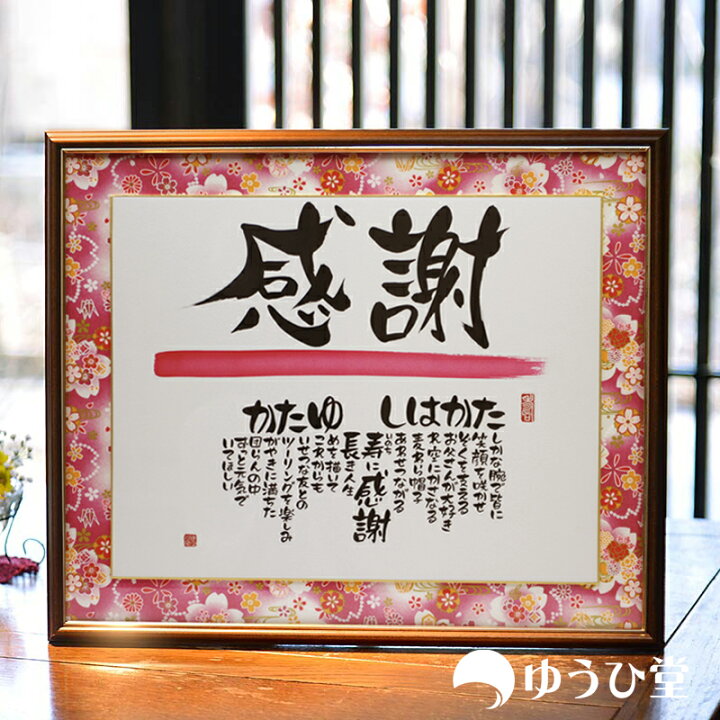 感謝
たかはし
ゆたか
しかな腕で皆に
笑顔を咲かせ
ぞくを支える
お父さんが大好き
れ空にかさなる
麦わら帽子
あわせつながる
いのち
寿に感謝
長き人生
めを描いて
これからも
いせつな友との
ツーリングを楽しみ
がやきに満ちた
団らんの中
ずっと元気で
いてほしい
ゆうひ堂